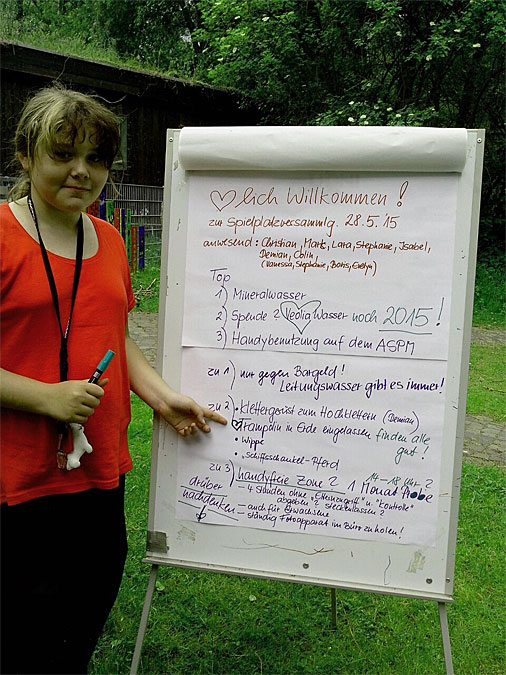 ♡lich Willkommen!
zur Spielplatzversammlg. 28.5.'15
anwesend: Christian, Lara, Stephanie, Isabel,
Demian, Colin,
(Vanessa, Stephanie, Boris, Evelyn)
Top
1) Mineralwasser
2) Spende 2 Veolia Wasser noch 2015!
3) Handybenutzung auf dem ASPM
zu 1) nur gegen Bargeld!
Leitungswasser gibt es immer!
zu 2) • Klettergerüst zum Hochklettern (Demian)
Trampolin in Erde eingelassen finden alle
gut!
• Wippe
• Schiffsschaukel-Pferd
zu 3) handyfreie Zone? 14-18 Uhr?
1 Monat Probe
drüber
nachdenken
- 4 Stunden ohne "Cheinengriff" u. "Kontrolle"
abgeben? steckenlassen?
- auch für Erwachsene
- ständig Fotoapparat im Büro zu holen!